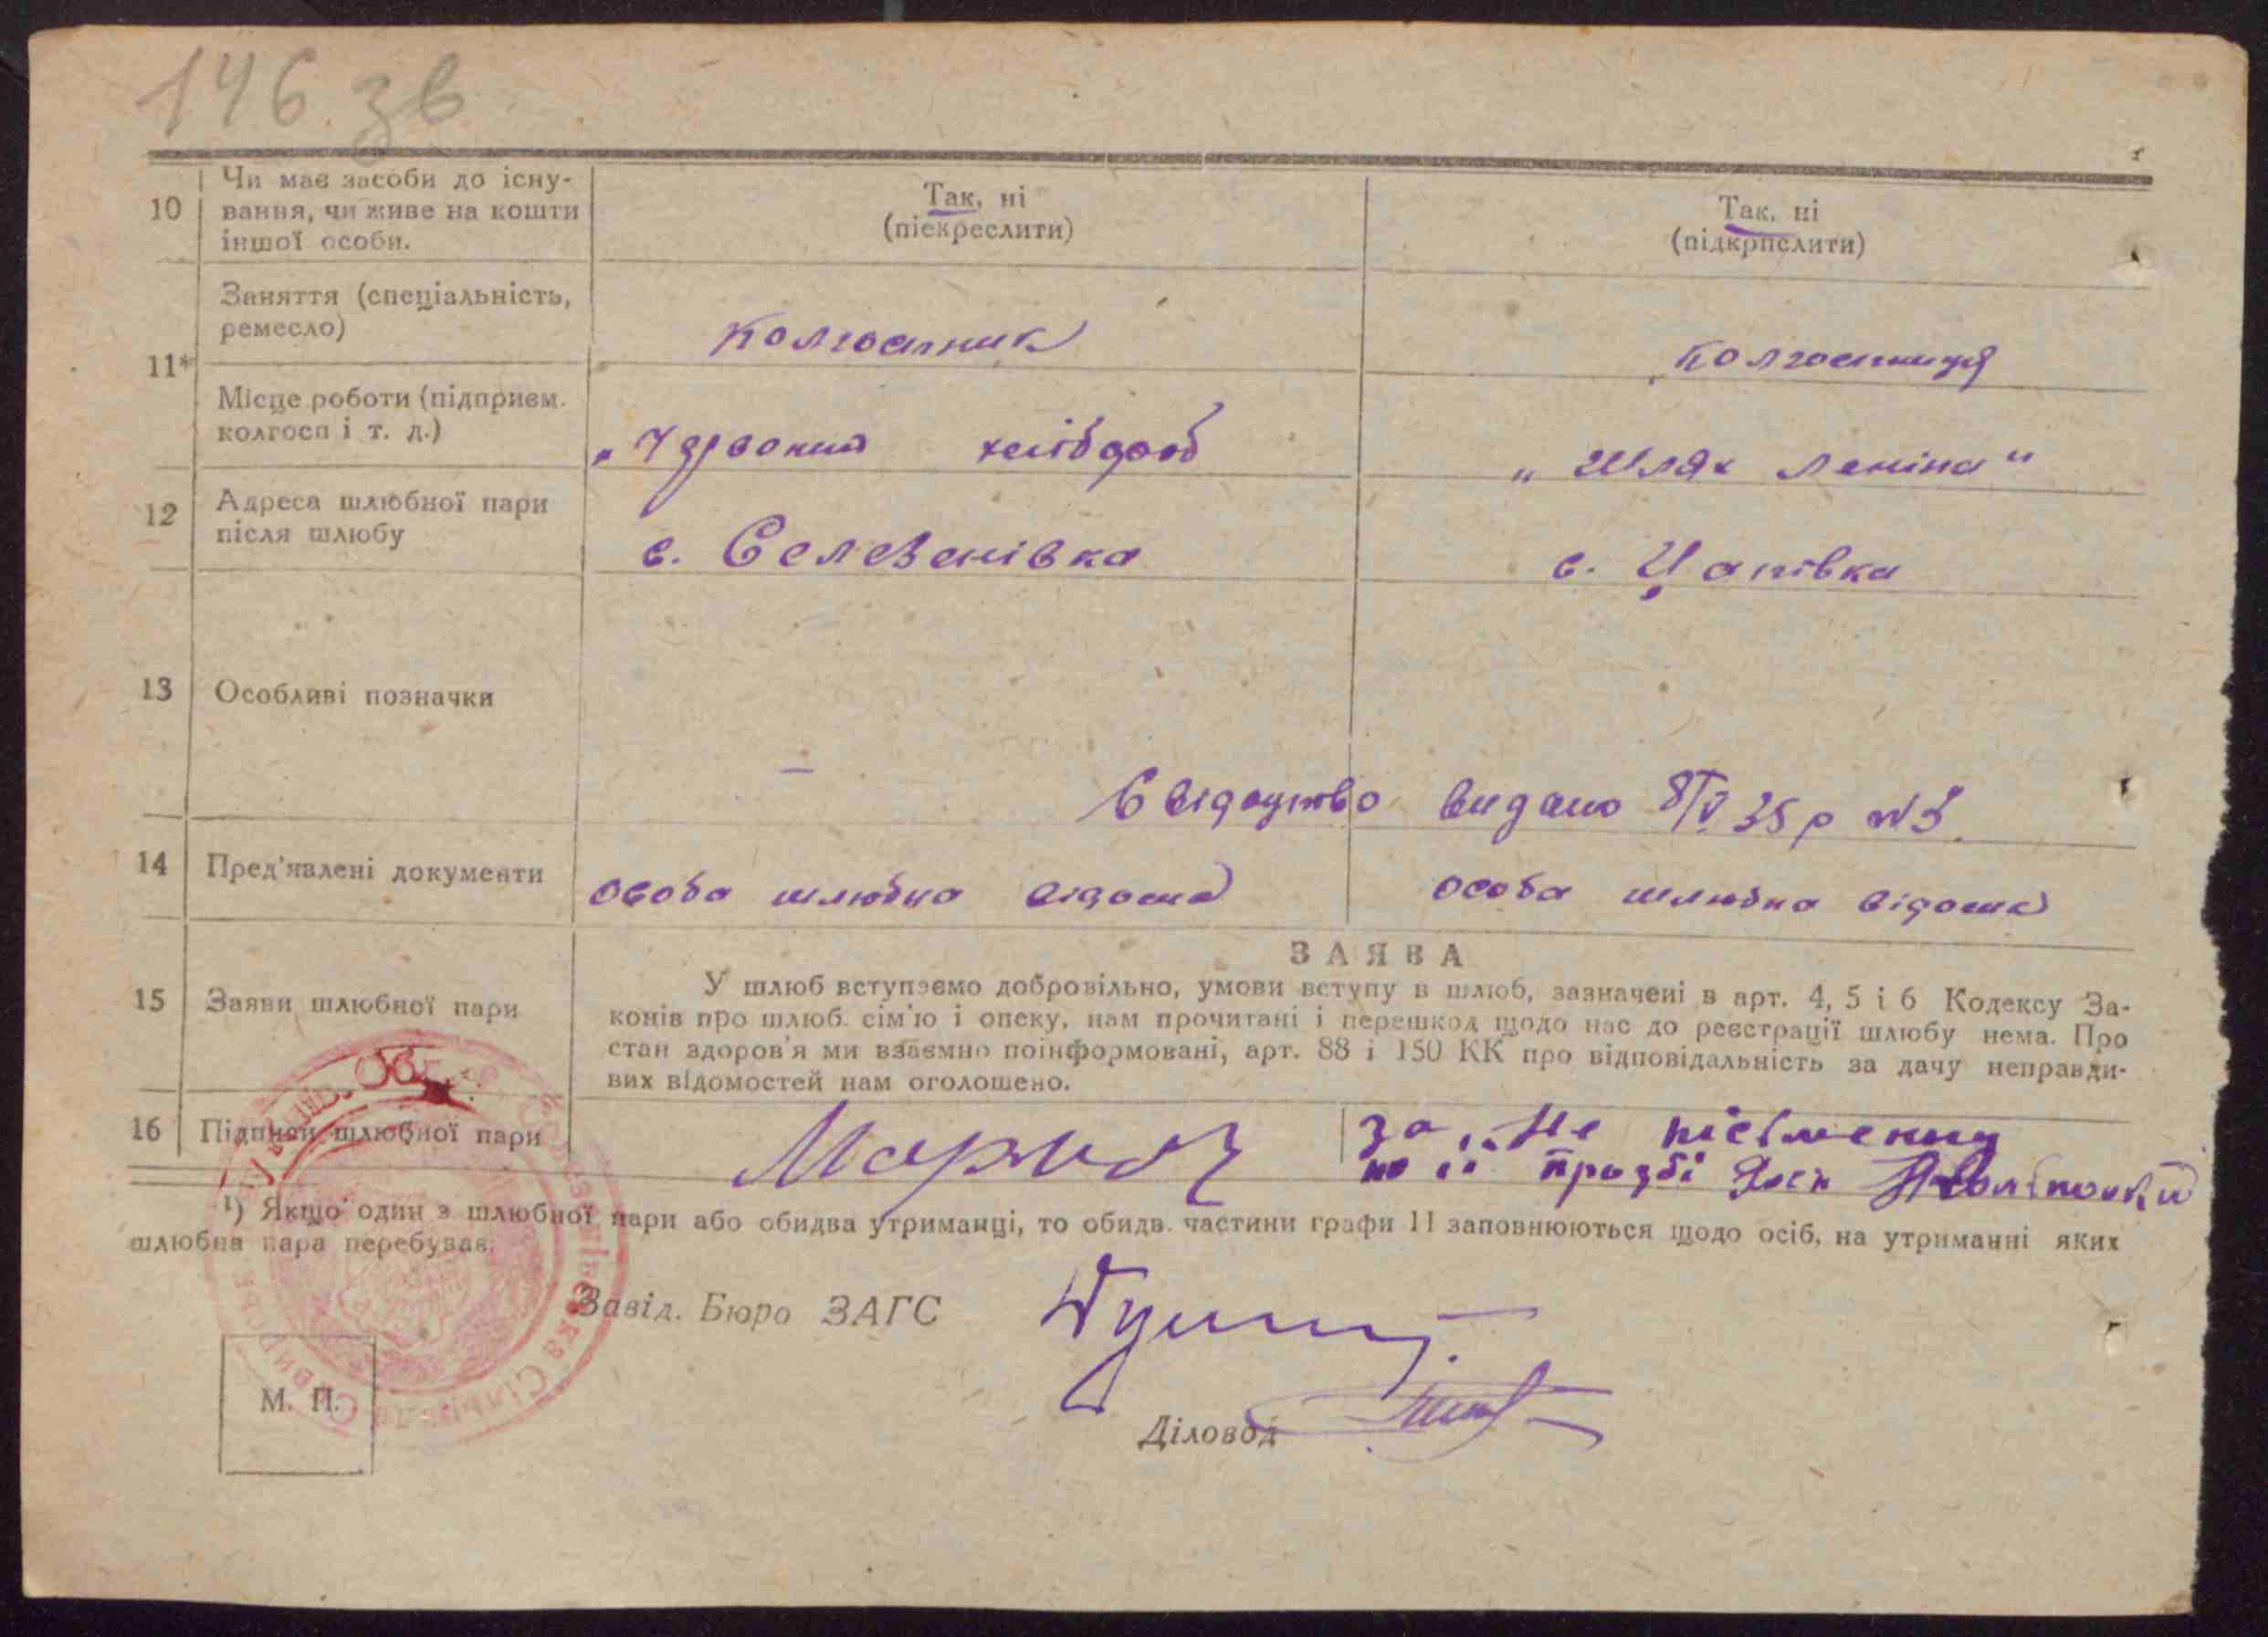 146 зв
10 Чи має засоби до існу-
вання, чи живе на кошти
іншої особи.
Так, ні
(піскреслити)
Так, ні
(підкрпслити)
11*
Заняття (спеціальність,
ремесло)
колгоспник
колгоспниця
Місце роботи (підприєм.
колгосп і т. д.)
хлібороб
„Шлях Леніна"
12 Адреса шлюбної пари
після шлюбу
с. Селезенівка
с. Цапівка
13 Особливі позначки
—
Свідоцтво видано 8/V 35 р №3
14 Пред'явлені документи
особа шлюбна відома
особа шлюбна відома
15 Заяви шлюбної пари
ЗАЯВА
У шлюб вступаємо добровільно, умови вступу в шлюб, зазначені в арт. 4, 5 і 6 Кодексу За-
конів про шлюб. сім'ю і опеку, нам прочитані і перешкод щодо нас до реєстрації шлюбу нема. Про
стан здоров'я ми взаємно поінформовані, арт. 88 і 150 КК про відповідальність за дачу неправди-
вих відомостей нам оголошено.
16 Підписи шлюбної пари
за не пісьменну
по її прозбі
¹) Якщо один з шлюбної пари або обидва утриманці, то обидв. частини графи 11 заповнюються щодо осіб, на утриманні яких
шлюбна пара перебуває.
Завід. Бюро ЗАГС
Діловод
М. П.